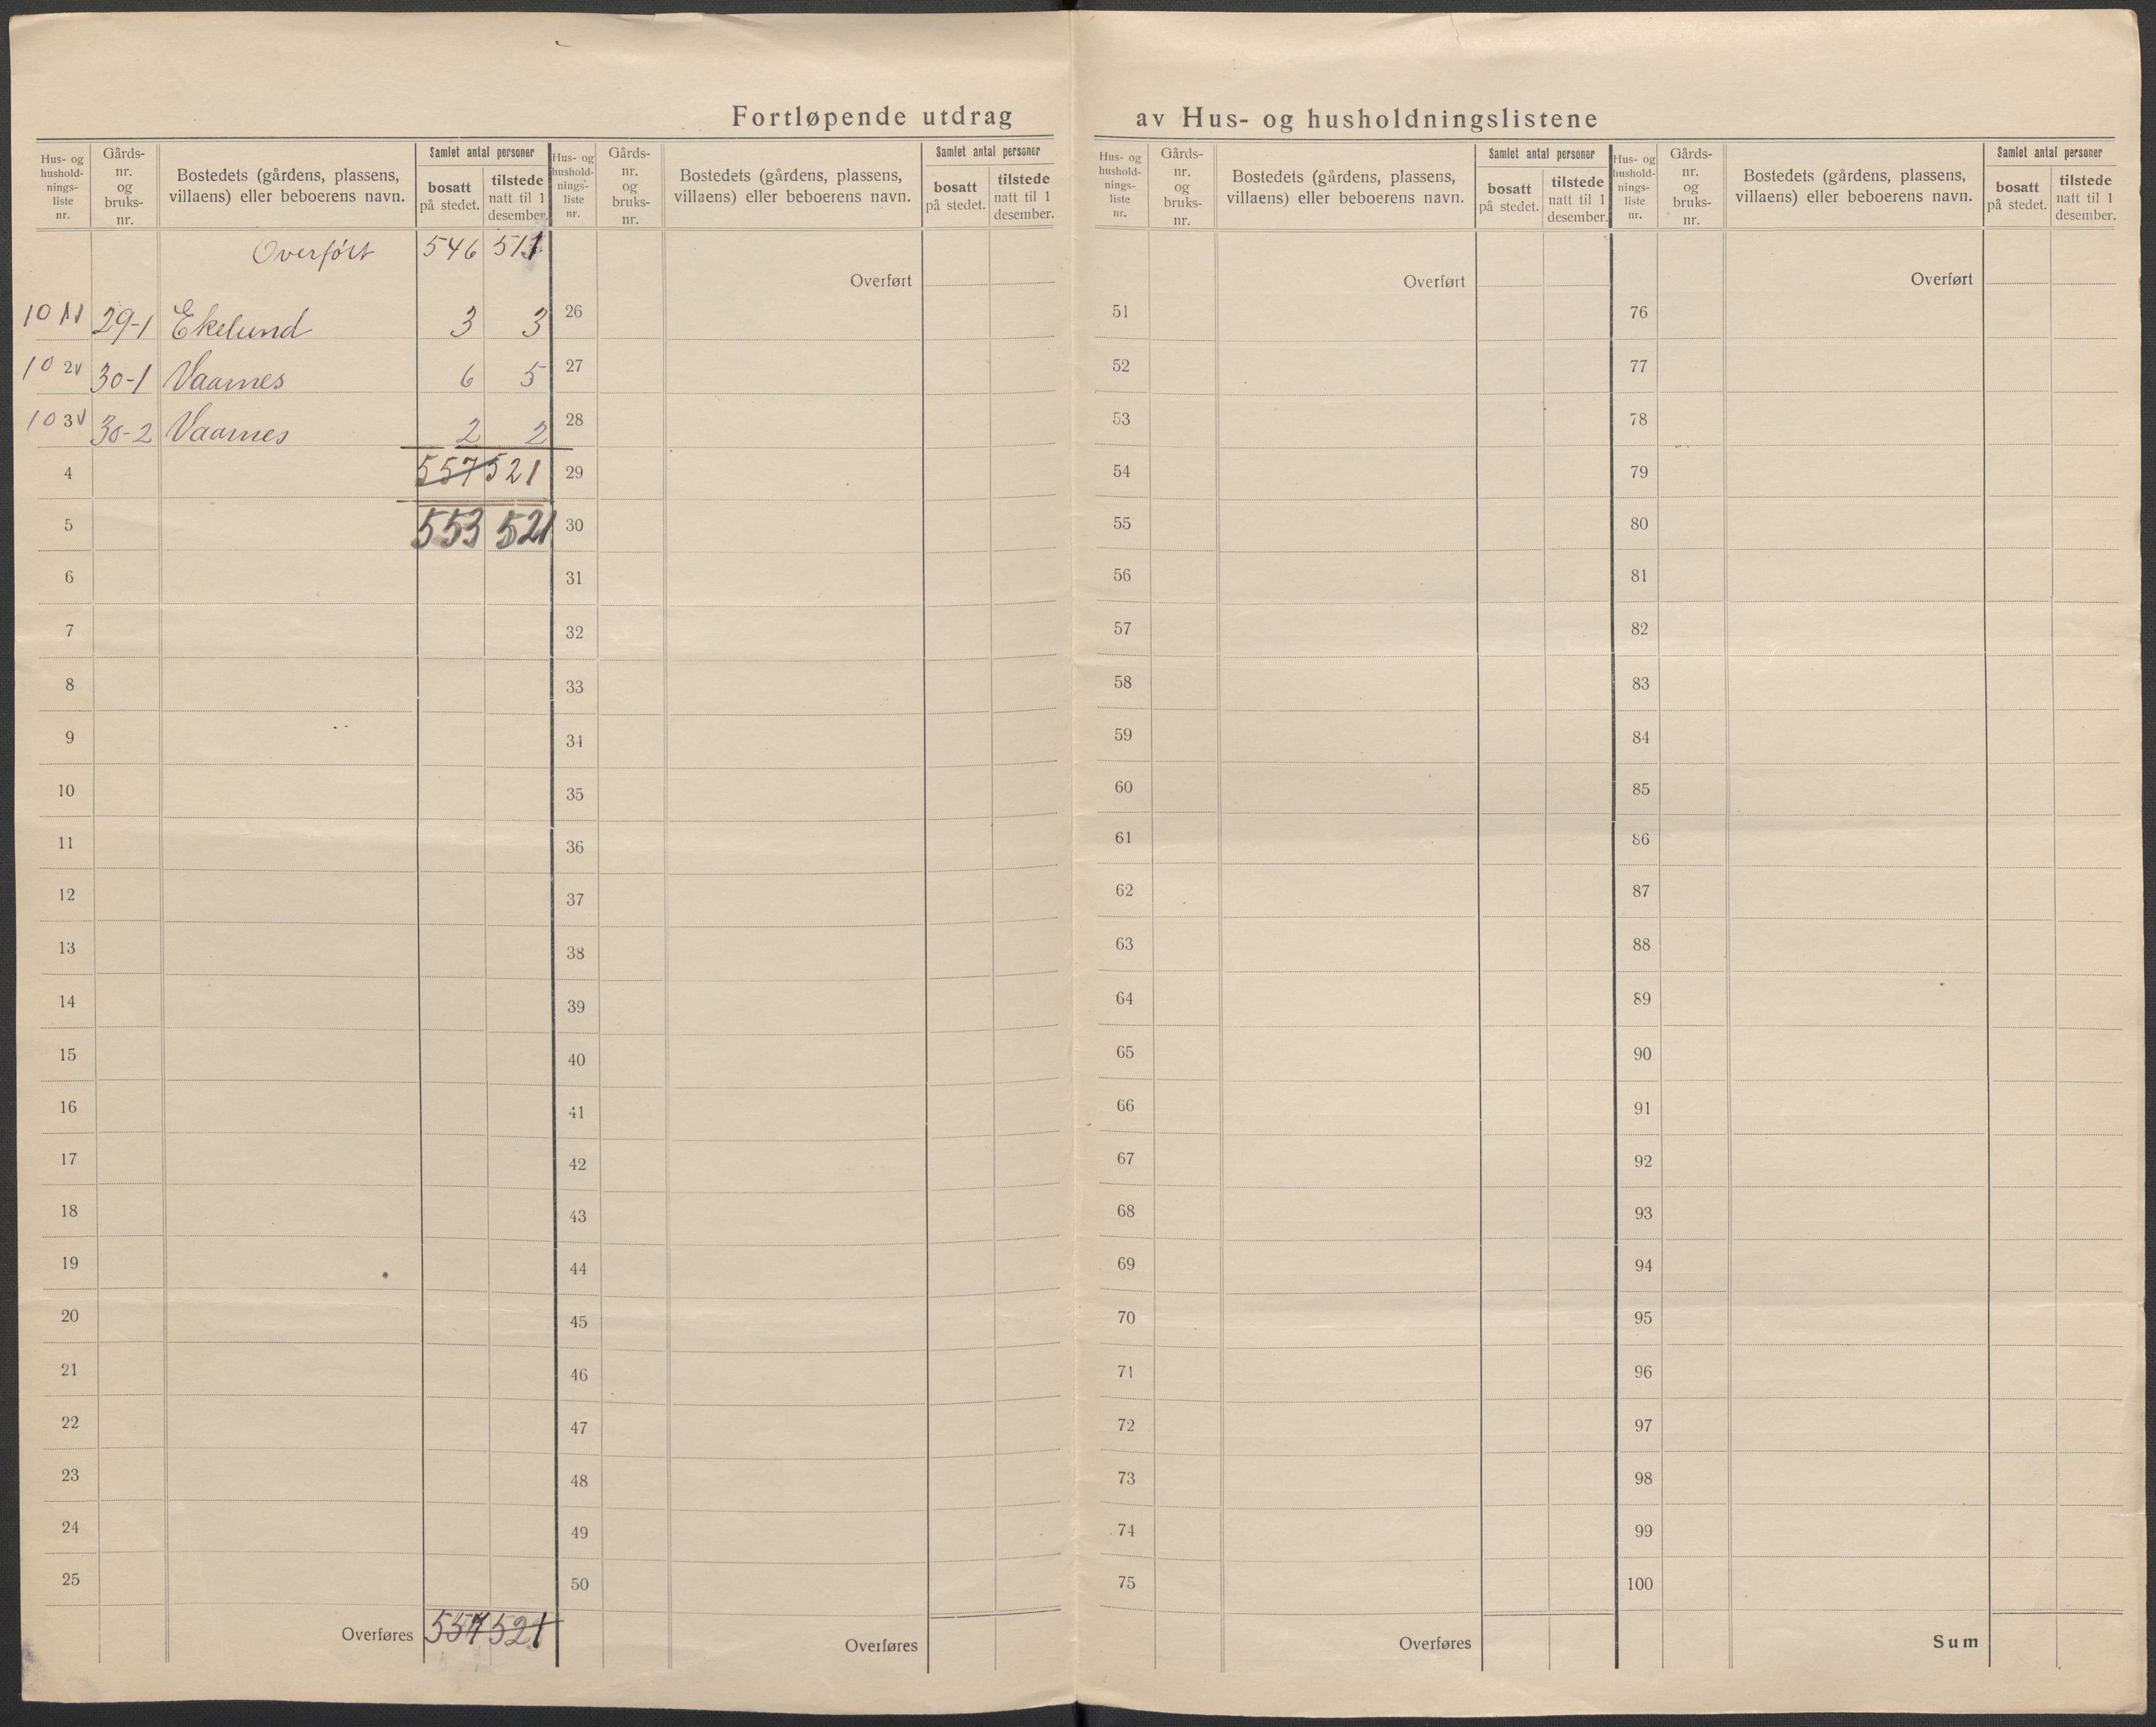 Fortløpende utdrag av Hus- og husholdningslistene
Hus- og hushold-nings-liste nr. Gårds-nr. og bruks-nr. Bostedets (gårdens, plassens, villaens) eller beboerens navn. Samlet antal personer bosatt på stedet. tilstede natt til 1 desember.
Overført 546 511
101 29-1 Ekelund 3 3
102 30-1 Vaarnes 6 5
103 30-2 Vaarnes 2 2
4 557 521
5 553 521
6
7
8
9
10
11
12
13
14
15
16
17
18
19
20
21
22
23
24
25
Overføres 557 521
Hus- og hushold-nings-liste nr. Gårds-nr. og bruks-nr. Bostedets (gårdens, plassens, villaens) eller beboerens navn. Samlet antal personer bosatt på stedet. tilstede natt til 1 desember.
Overført
26
27
28
29
30
31
32
33
34
35
36
37
38
39
40
41
42
43
44
45
46
47
48
49
50
Overføres
Hus- og hushold-nings-liste nr. Gårds-nr. og bruks-nr. Bostedets (gårdens, plassens, villaens) eller beboerens navn. Samlet antal personer bosatt på stedet. tilstede natt til 1 desember.
Overført
51
52
53
54
55
56
57
58
59
60
61
62
63
64
65
66
67
68
69
70
71
72
73
74
75
Overføres
Hus- og hushold-nings-liste nr. Gårds-nr. og bruks-nr. Bostedets (gårdens, plassens, villaens) eller beboerens navn. Samlet antal personer bosatt på stedet. tilstede natt til 1 desember.
Overført
76
77
78
79
80
81
82
83
84
85
86
87
88
89
90
91
92
93
94
95
96
97
98
99
100
Sum